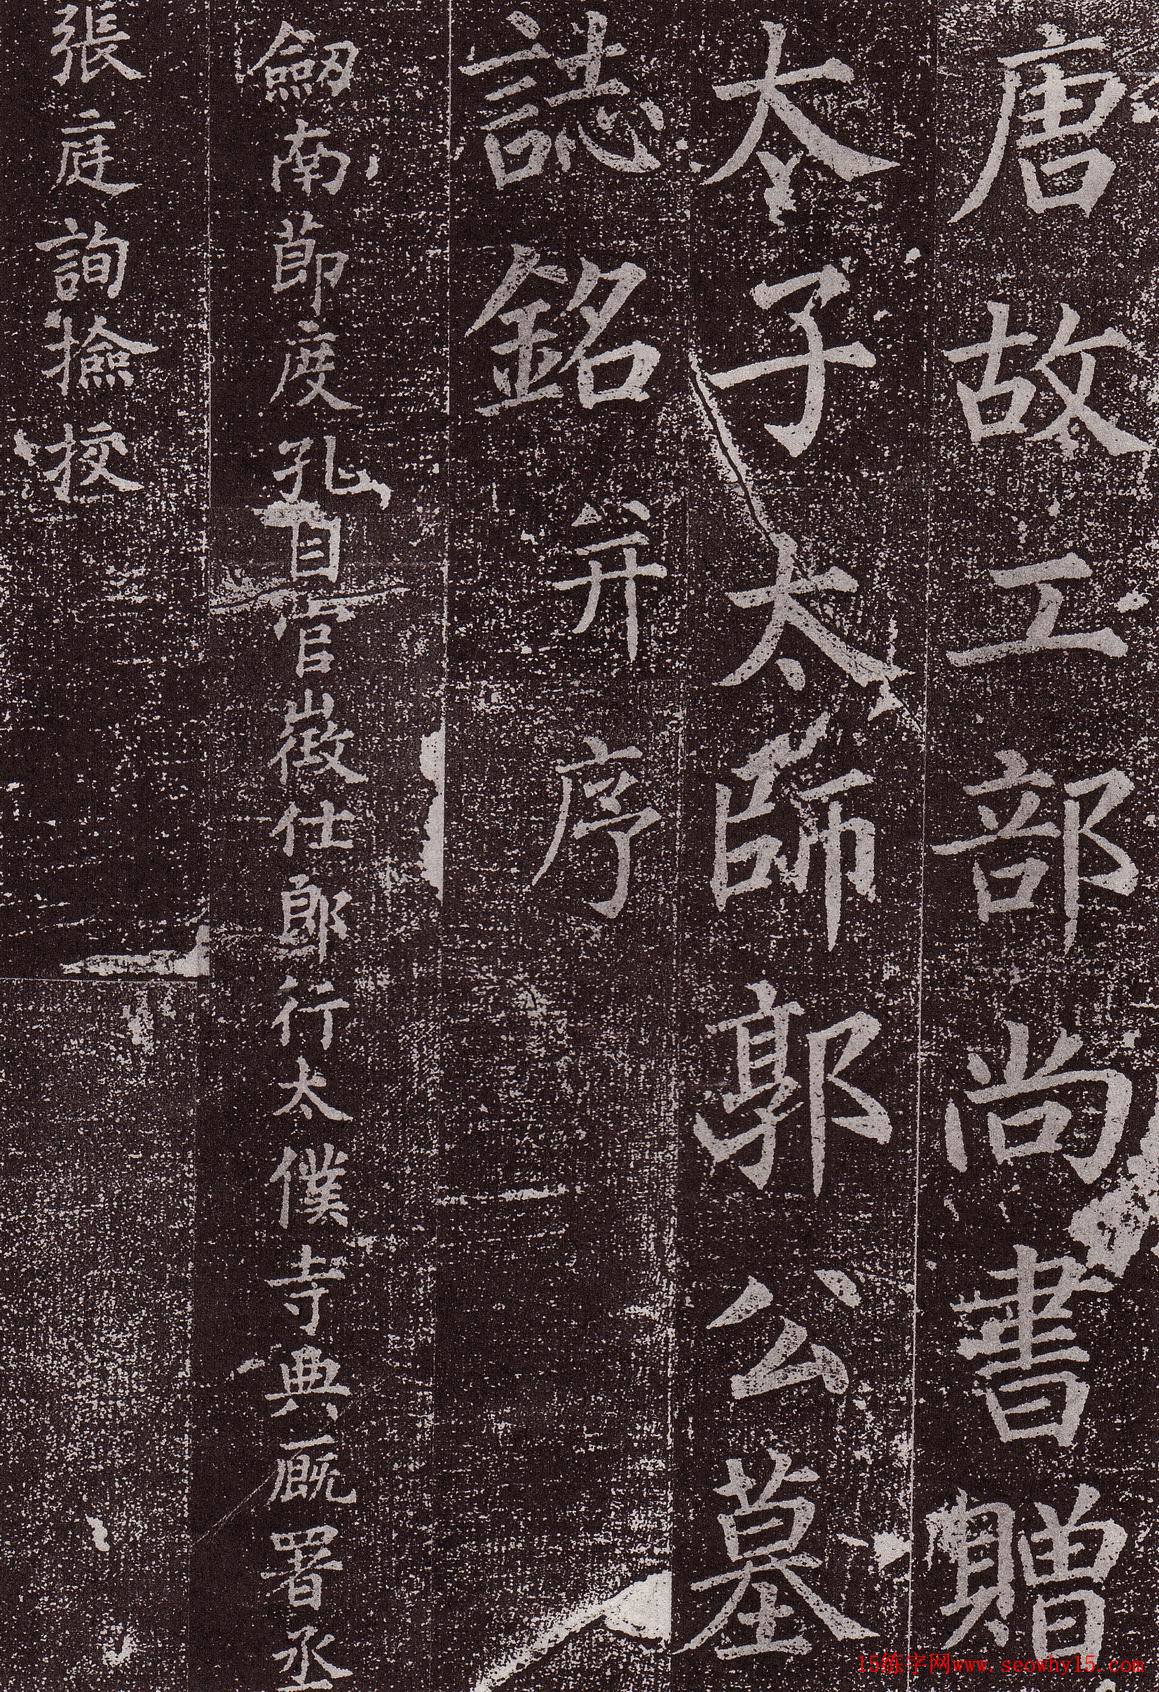 唐故工部尚書贈
太子太師郭公墓
誌銘并序
劒南節度孔目官徵仕郎行太僕寺典廐署丞
張庭詢撿挍
15练字网www.seowhy15.com